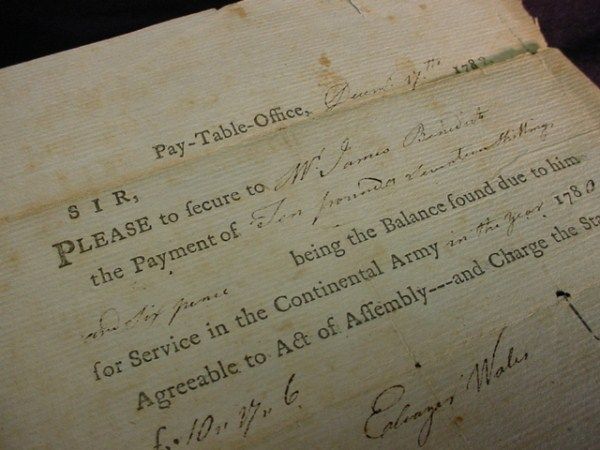 Pay-Table-Office, Decem. 17th 1782.
SIR,
PLEASE to ſecure to Mr James Benedict
the Payment of Ten pounds Seventeen Shillings
and Six pence being the Balance found due to him
for Service in the Continental Army in the year 1780
Agreeable to Act of Aſſembly---and Charge the Sta
£10 " 17 " 6
Eleazer Wales